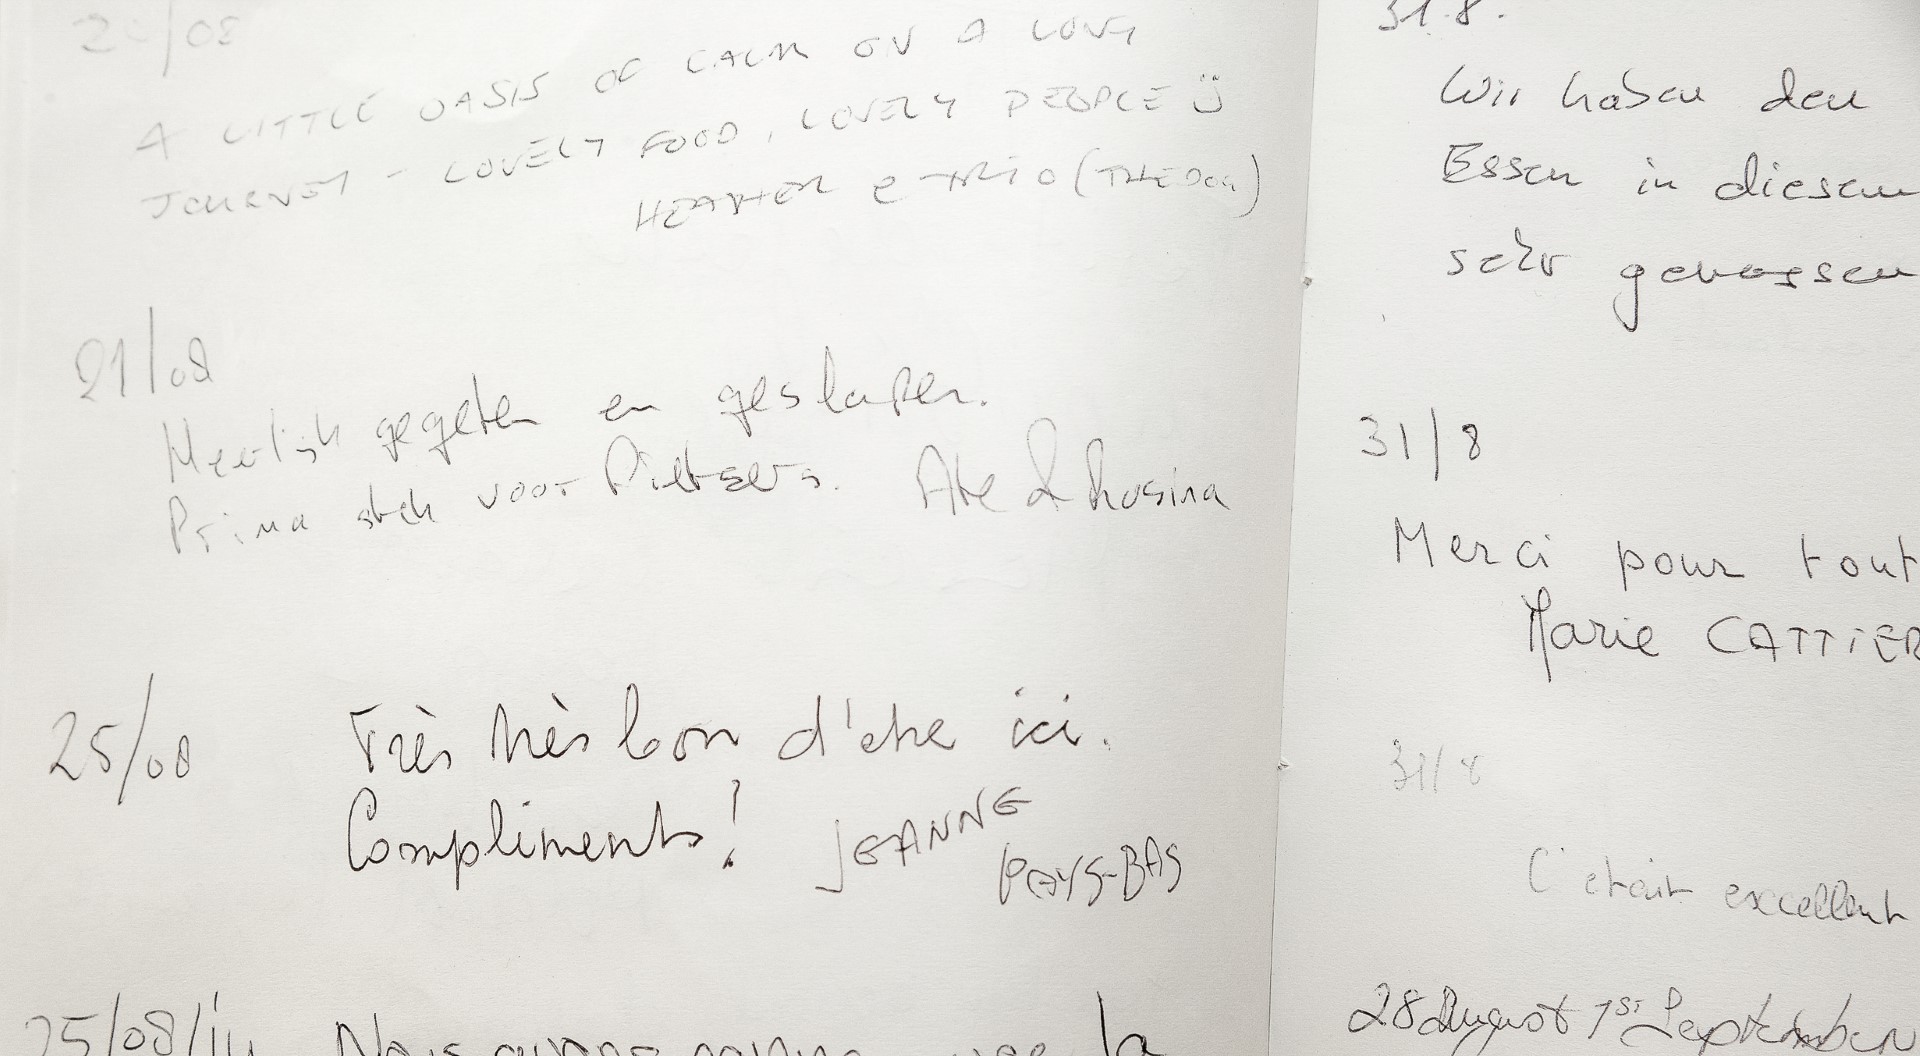 20/08
A LITTLE OASIS OF CALM ON A LONG
JOURNEY - LOVELY FOOD, LOVELY PEOPLE
HEATHER
21/08
Heerlijk gegeten en geslapen.
Prima stek voor Fietsers. Ate & Rosina
25/08
Très très bon d'être ici.
Compliments!
JEANNE
PAYS-BAS
25/08/14 Nous avons la
31.8.
Wir haben den
Essen in diesem
sehr genossen
31/8
Merci pour tout
Marie CATTIER
31/8
C'était excellent
28 August 1st September